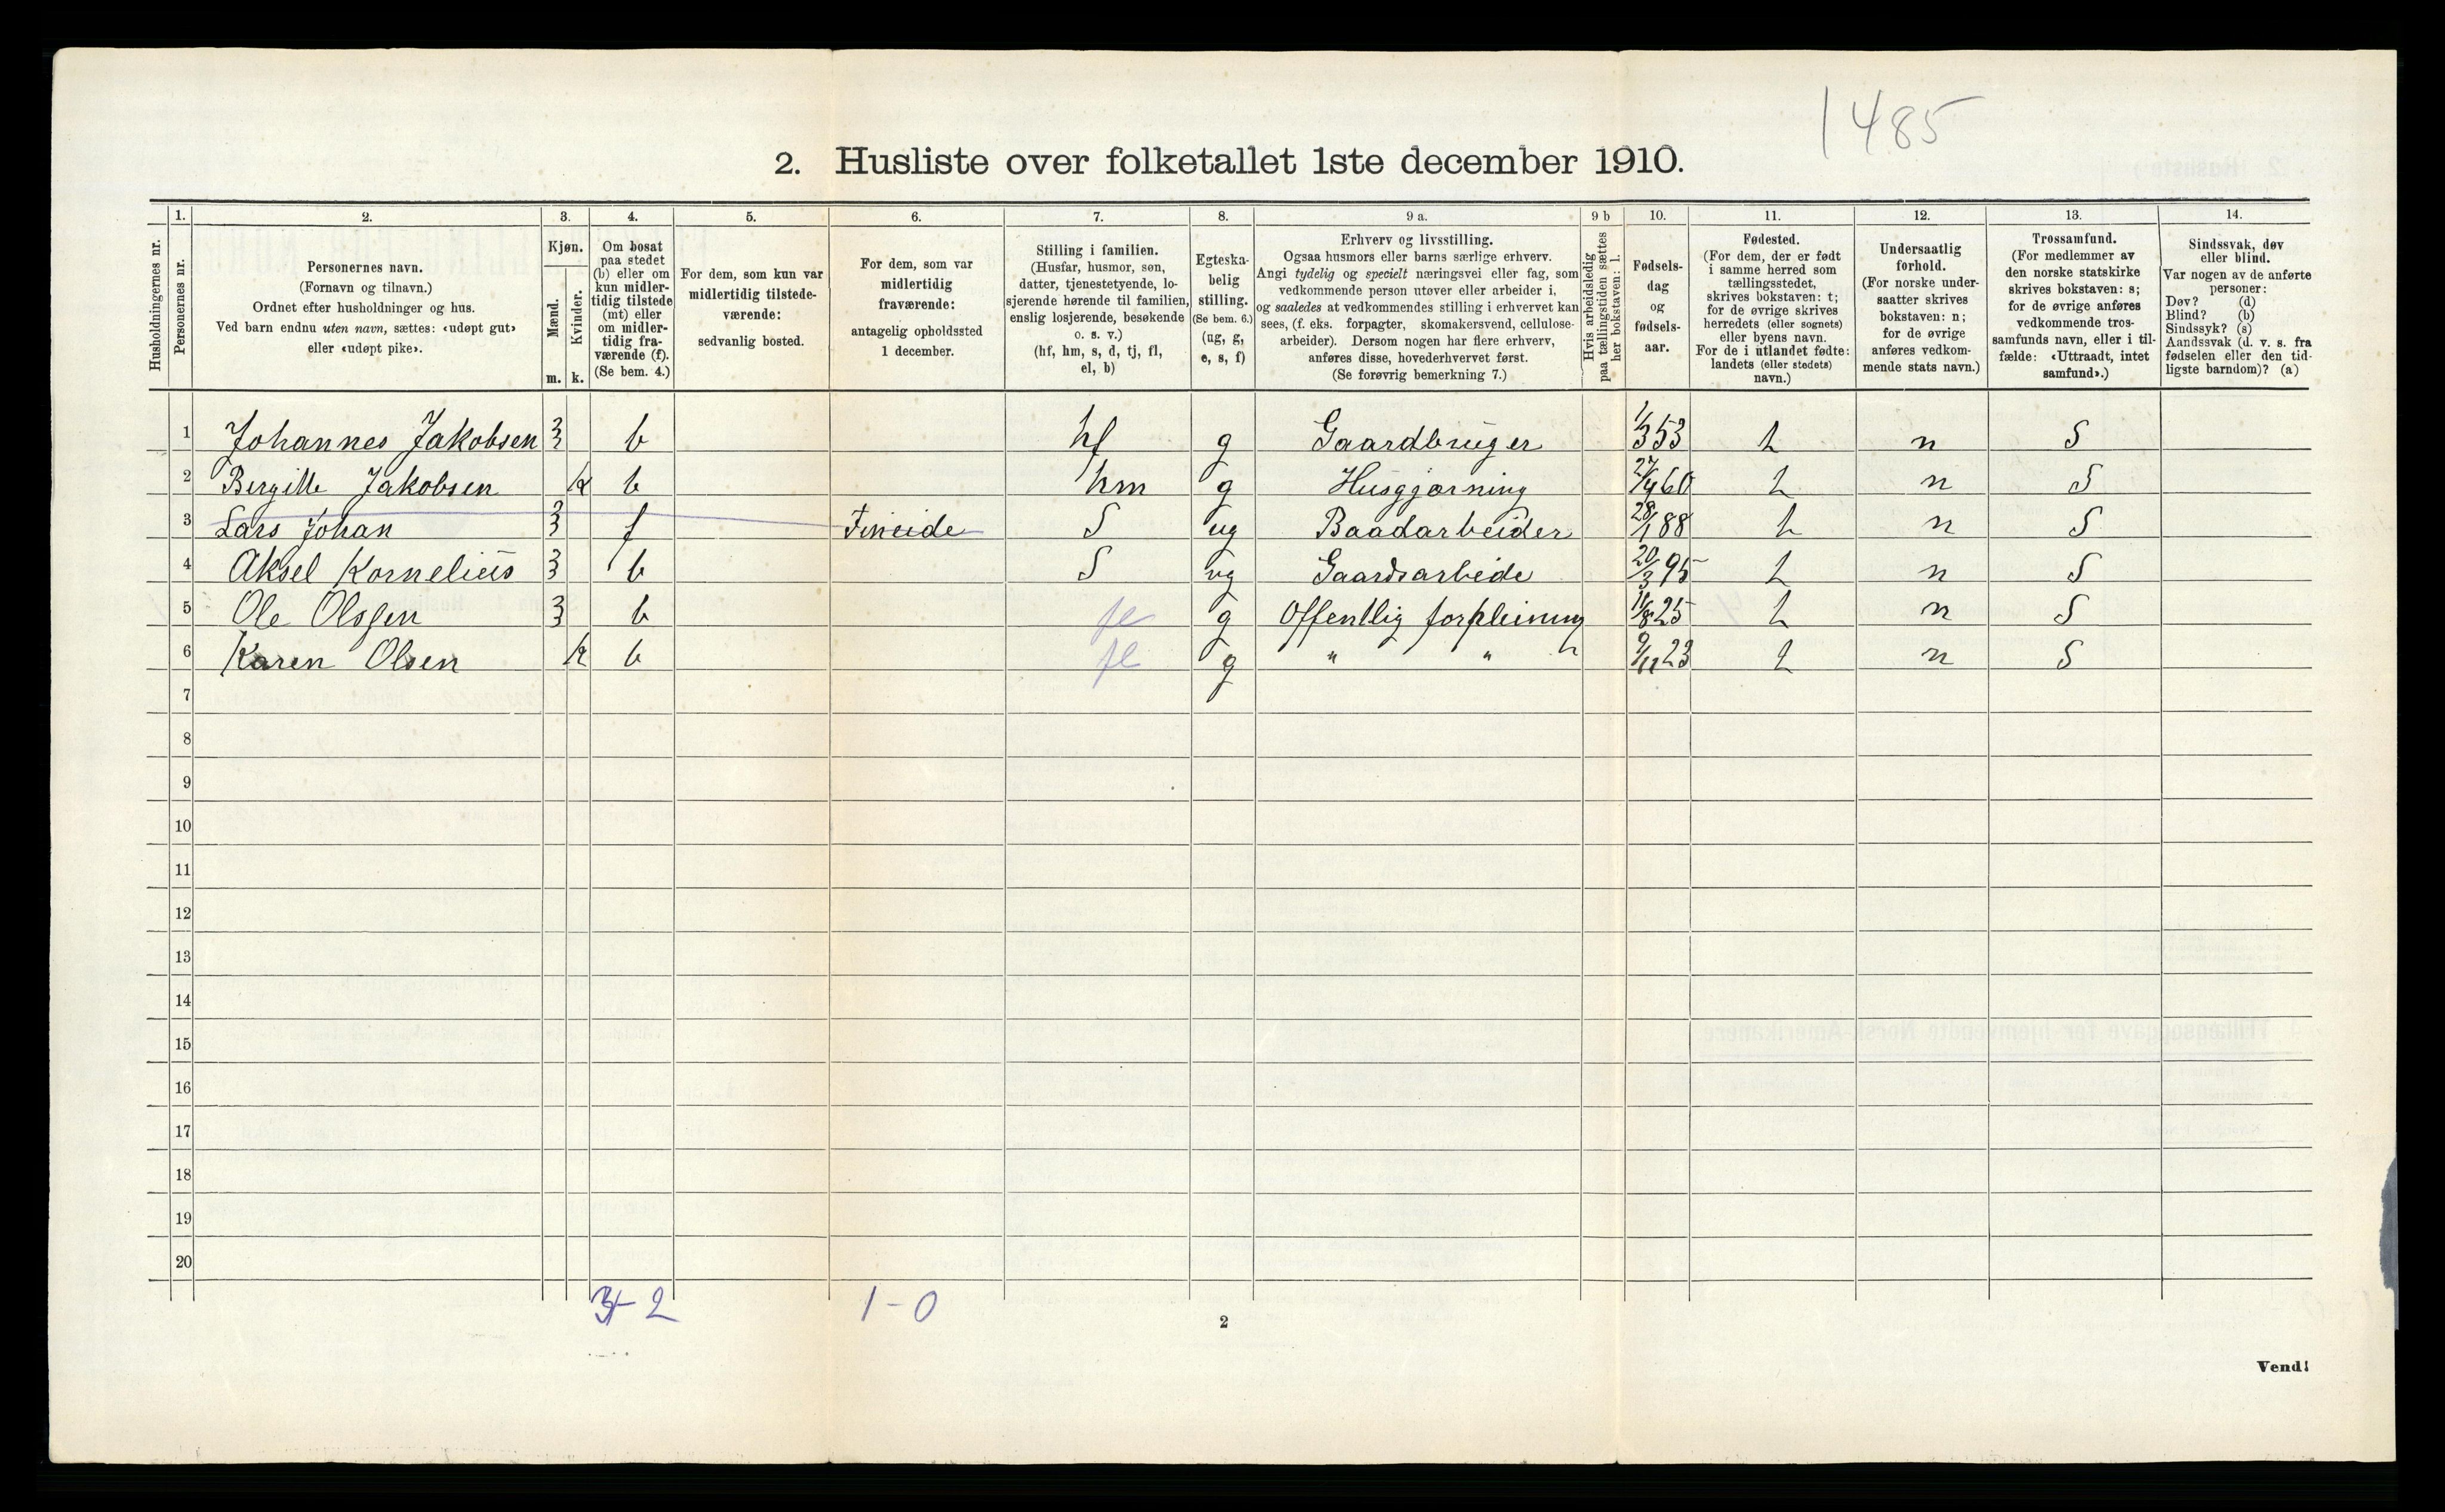 1485
2. Husliste over folketallet 1ste december 1910.
1. 2. 3. 4. 5. 6. 7. 8. 9 a. 9 b 10. 11. 12. 13. 14.
Husholdningernes nr.
Personernes nr.
Personernes navn.
(Fornavn og tilnavn.)
Ordnet efter husholdninger og hus.
Ved barn endnu uten navn, sættes: «udøpt gut»
eller «udøpt pike».
Kjøn.
Mænd.
Kvinder.
m. k.
Om bosat
paa stedet
(b) eller om
kun midler-
tidig tilstede
(mt) eller
om midler-
tidig fra-
værende (f).
(Se bem. 4.)
For dem, som kun var
midlertidig tilstede-
værende:
sedvanlig bosted.
For dem, som var
midlertidig
fraværende:
antagelig opholdssted
1 december.
Stilling i familien.
(Husfar, husmor, søn,
datter, tjenestetyende, lo-
sjerende hørende til familien,
enslig losjerende, besøkende
o. s. v.)
(hf, hm, s, d, tj, fl,
el, b)
Egteska-
belig
stilling.
(Se bem. 6.)
(ug, g,
e, s, f)
Erhverv og livsstilling.
Ogsaa husmors eller barns særlige erhverv.
Angi tydelig og specielt næringsvei eller fag, som
vedkommende person utøver eller arbeider i,
og saaledes at vedkommendes stilling i erhvervet kan
sees, (f. eks. forpagter, skomakersvend, cellulose-
arbeider). Dersom nogen har flere erhverv,
anføres disse, hovederhvervet først.
(Se forøvrig bemerkning 7.)
Hvis arbeidsledig
paa tællingstiden sættes
her bokstaven: l.
Fødsels-
dag
og
fødsels-
aar.
Fødested.
(For dem, der er født
i samme herred som
tællingsstedet,
skrives bokstaven: t;
for de øvrige skrives
herredets (eller sognets)
eller byens navn.
For de i utlandet fødte:
landets (eller stedets)
navn.)
Undersaatlig
forhold.
(For norske under-
saatter skrives
bokstaven: n;
for de øvrige
anføres vedkom-
mende stats navn.)
Trossamfund.
(For medlemmer av
den norske statskirke
skrives bokstaven: s;
for de øvrige anføres
vedkommende tros-
samfunds navn, eller i til-
fælde: «Uttraadt, intet
samfund».)
Sindssvak, døv
eller blind.
Var nogen av de anførte
personer:
Døv? (d)
Blind? (b)
Sindssyk? (s)
Aandssvak (d. v. s. fra
fødselen eller den tid-
ligste barndom)? (a)
1 Johannes Jakobsen 3 b hf g Gaardbruger 1/3 53 t n S
2 Bergitte Jakobsen k b hm g Husgjærning 27/9 60 t n S
3 Lars Johan 3 f Fineide S ug Baadarbeider 28/1 88 t n S
4 Aksel Kornelius 3 b S ug Gaardsarbeide 20/3 95 t n S
5 Ole Olsen 3 b fl g Offentlig forpleining 11/8 25 t n S
6 Karen Olsen k b fl g " " 9/11 23 t n S
7 g
8
9
10
11
12
13
14
15
16
17
18
19
20
3-2 1-0
2
Vend!